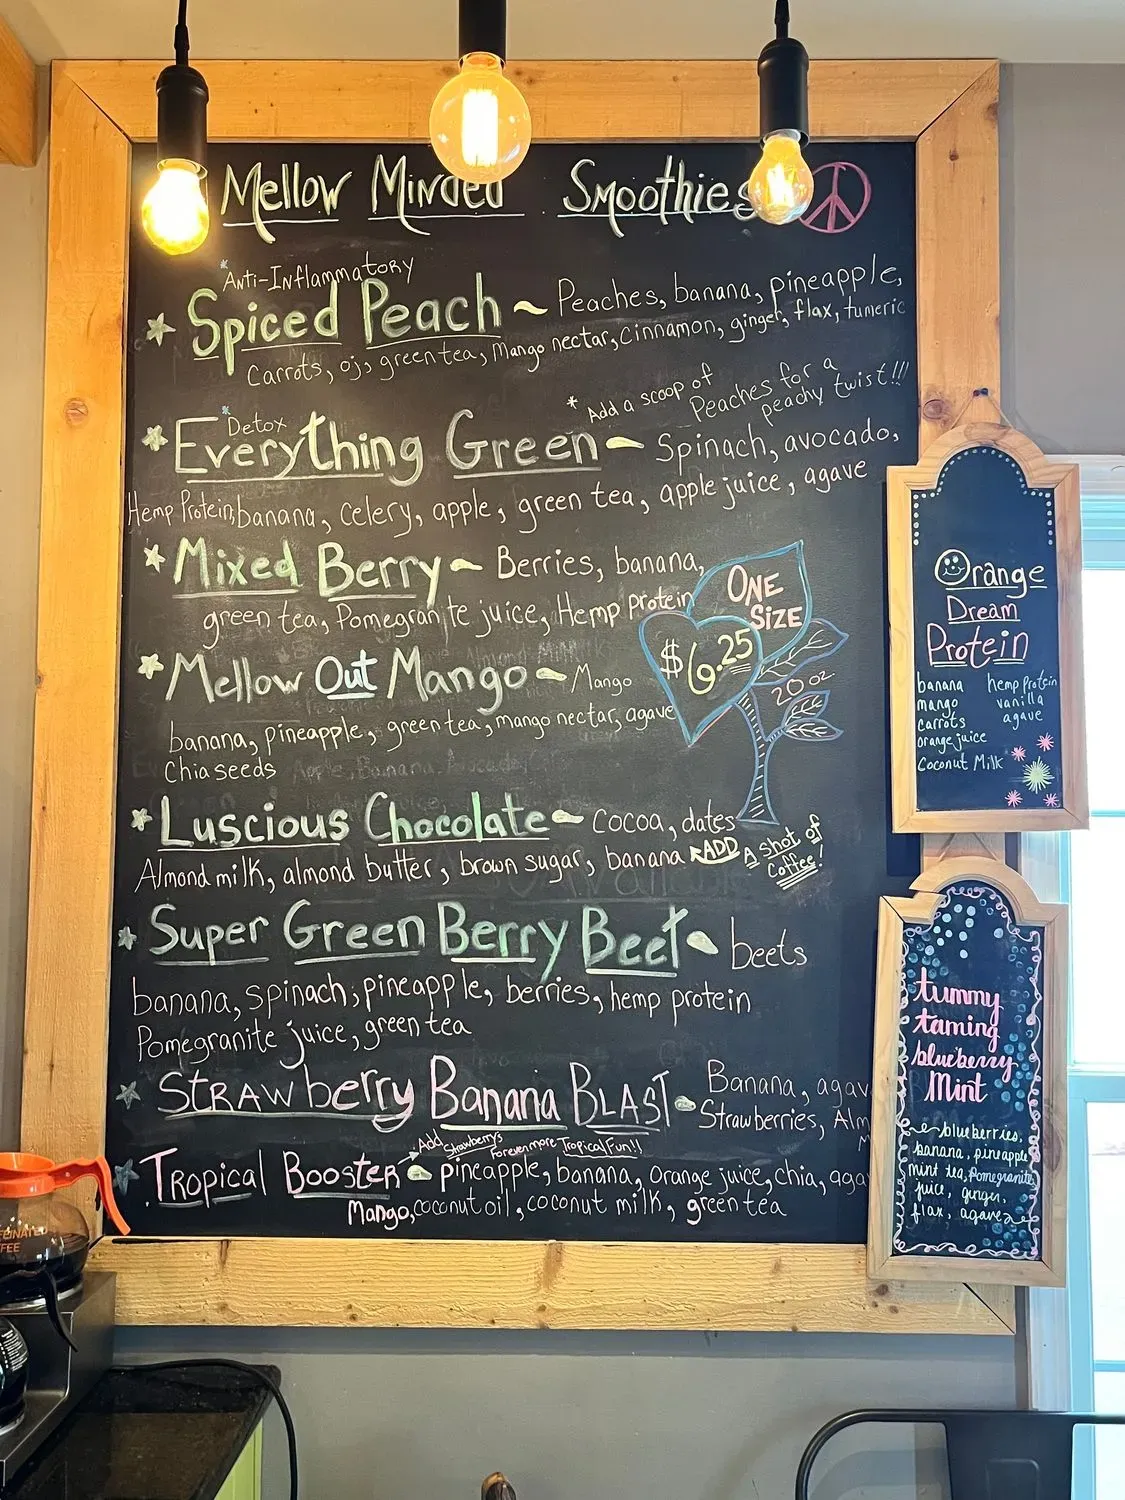 Mellow Minded Smoothies
*Anti-Inflammatory
Spiced Peach ~ Peaches, banana, pineapple,
Carrots, oj, green tea, Mango nectar, Cinnamon, ginger, flax, tumeric
* Add a scoop of
Peaches for a
peachy twist!!!
*Detox
Everything Green ~ Spinach, avocado,
Hemp Protein, banana, celery, apple, green tea, apple juice, agave
Mixed Berry ~ Berries, banana,
green tea, Pomegranite juice, Hemp protein
ONE
SIZE
$6.25
20 oz
Mellow Out Mango ~ Mango
banana, pineapple, green tea, mango nectar, agave
Chia seeds
Luscious Chocolate ~ Cocoa, dates
Almond milk, almond butter, brown sugar, banana
ADD A shot of
Coffee!
Super Green Berry Beet ~ beets
banana, spinach, pineapple, berries, hemp protein
Pomegranite juice, green tea
STRAWberry Banana BLAST ~ Banana, agav
Strawberries, Alm
M
Add Strawberrys
Forevenmore Tropical Fun!!
Tropical Booster ~ pineapple, banana, orange juice, chia, aga
Mango, coconut oil, coconut milk, green tea
Orange
Dream
Protein
banana hemp protein
mango vanilla
carrots agave
orange juice
Coconut Milk
tummy
taming
blueberry
Mint
blueberries,
banana, pineapple
mint tea, Pomegranite
juice, ginger,
flax, agave